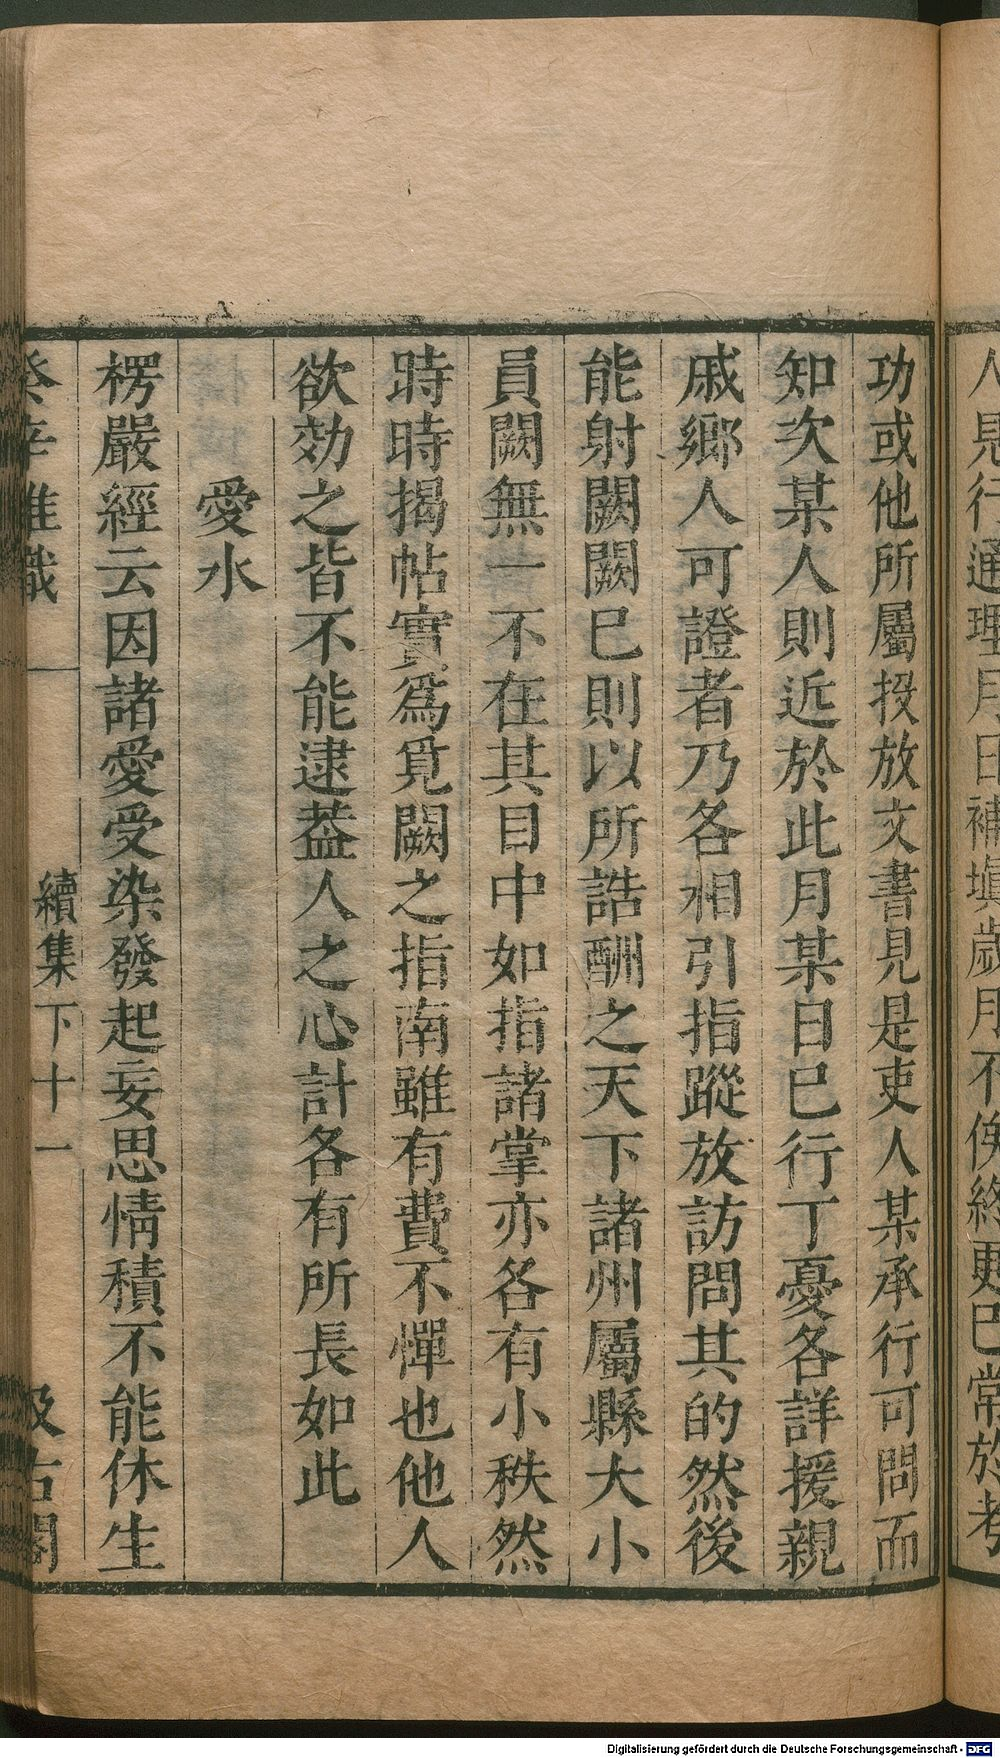 人見行通理月日補塡歲月不俟終更巳常於考
功或他所屬投放文書見是吏人某承行可問而
知次某人則近於此月某日巳行丁憂各詳援親
戚鄉人可證者乃各相引指蹤放訪問其的然後
能射闕闕巳則以所誥酬之天下諸州屬縣大小
員闕無一不在其目中如指諸掌亦各有小秩然
時時揭帖實爲覓闕之指南雖有費不憚也他人
欲効之皆不能逮葢人之心計各有所長如此
愛水
楞嚴經云因諸愛受染發起妄思情積不能休生
癸辛雜識
續集下十一
汲古閣
Digitalisierung gefördert durch die Deutsche Forschungsgemeinschaft - DFG